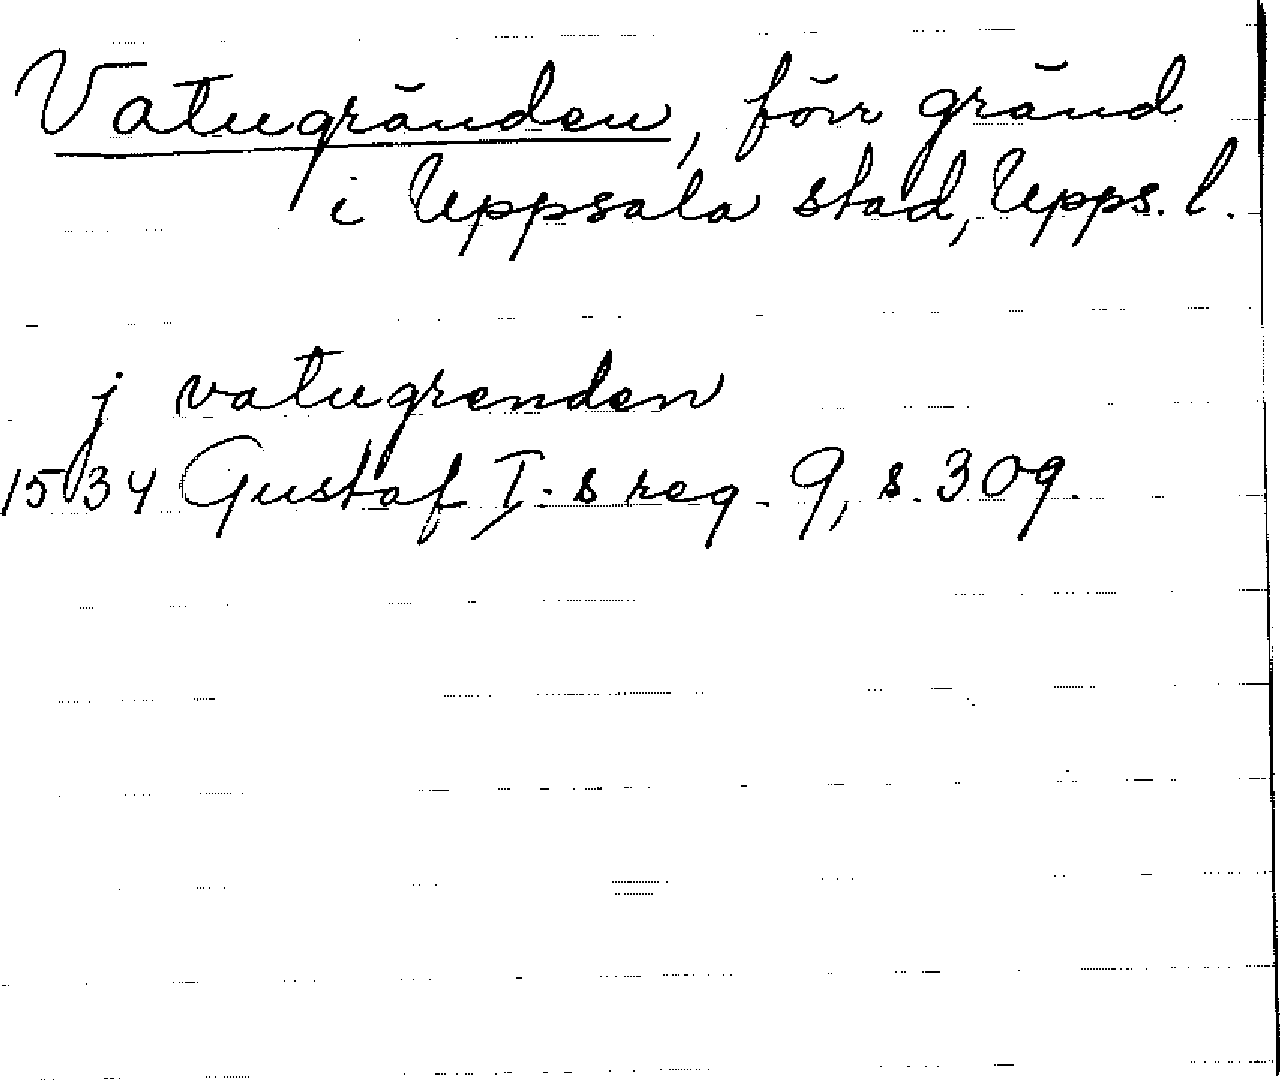 Vatugränden, förr gränd
i Uppsala stad, Upps. l.
j vatugrenden
1534 Gustaf I:s reg. 9, s. 309.